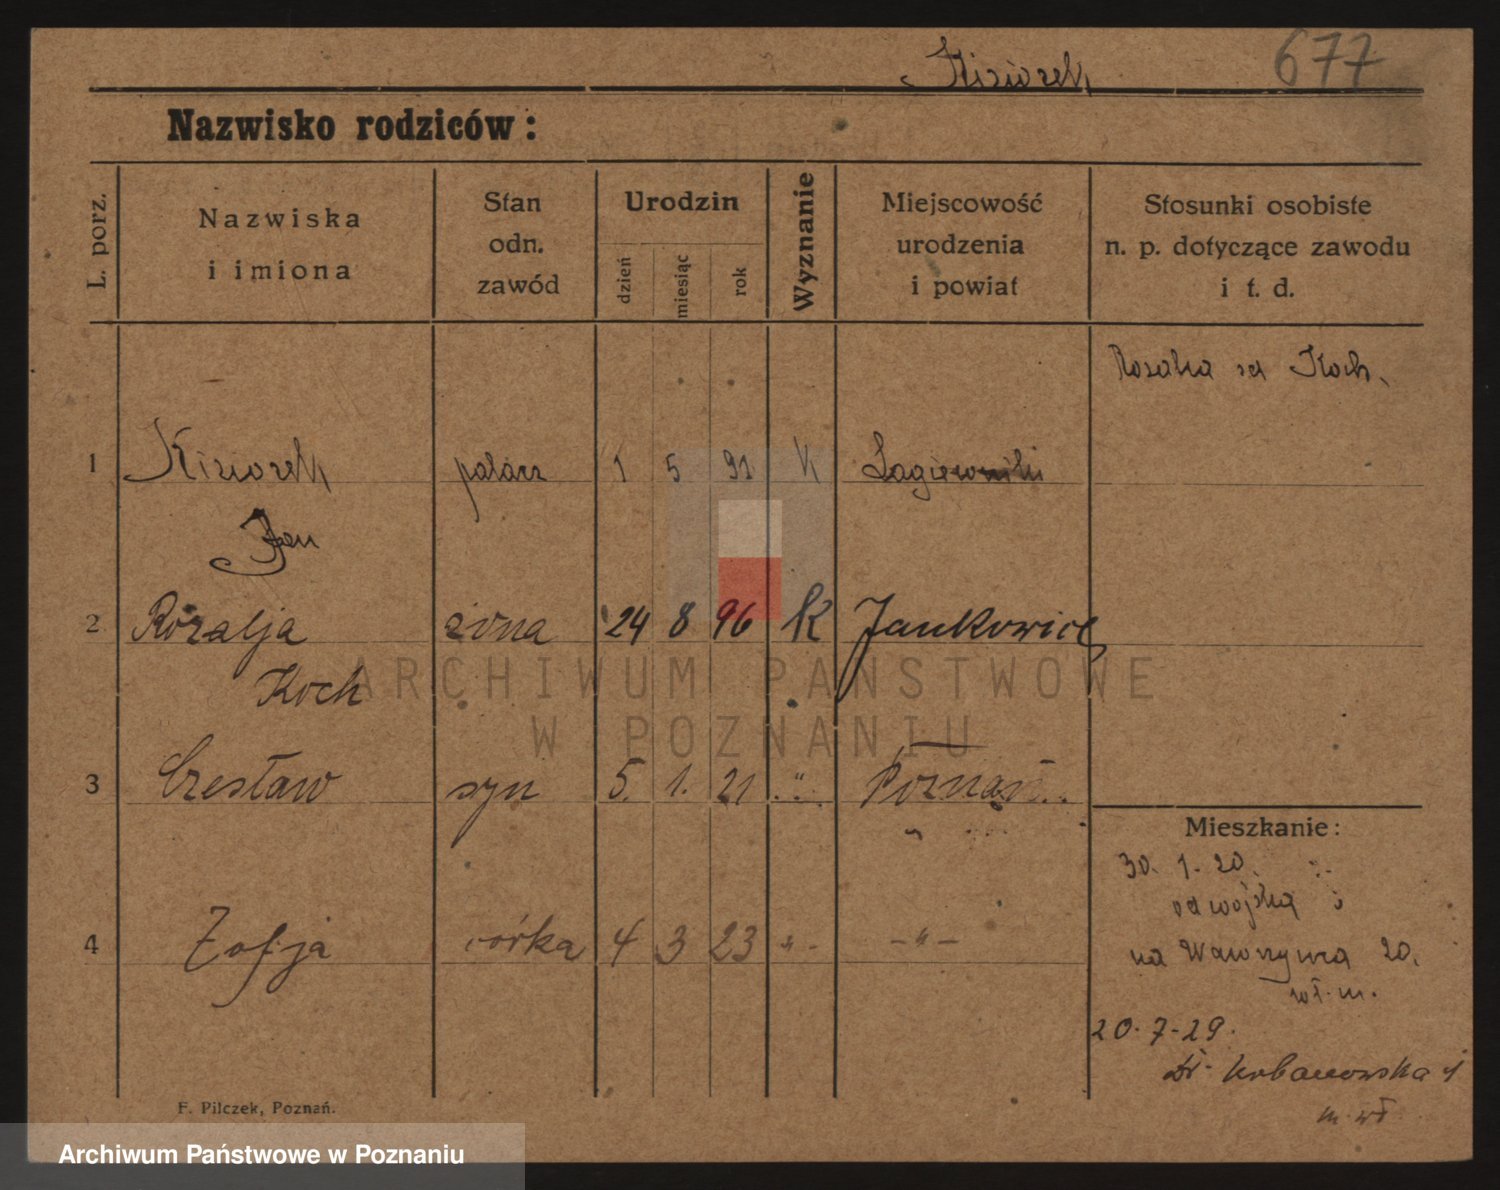 Kiziorek 677
Nazwisko rodziców:
L. porz.
Nazwiska
i imiona
Stan
odn.
zawód
Urodzin
dzień
miesiąc
rok
Wyznanie
Miejscowość
urodzenia
i powiat
Stosunki osobiste
n. p. dotyczące zawodu
i t. d.
Rozalia od Koch.
1 Kiziorek palacz 1 5 91 K Łagiewniki
Jan
2 Rozalja żona 24 8 96 K Jankowice
Koch
3 Czesław syn 5. 1. 21 " Poznań
4 Zofja córka 4 3 23 -"- -"-
Mieszkanie:
30. 1. 20.
od wojska
na Wawrzyńca 20.
wł. m.
20-7-29.
m. wł.
F. Pilczek, Poznań.
ARCHIWUM PAŃSTWOWE
W POZNANIU
Archiwum Państwowe w Poznaniu